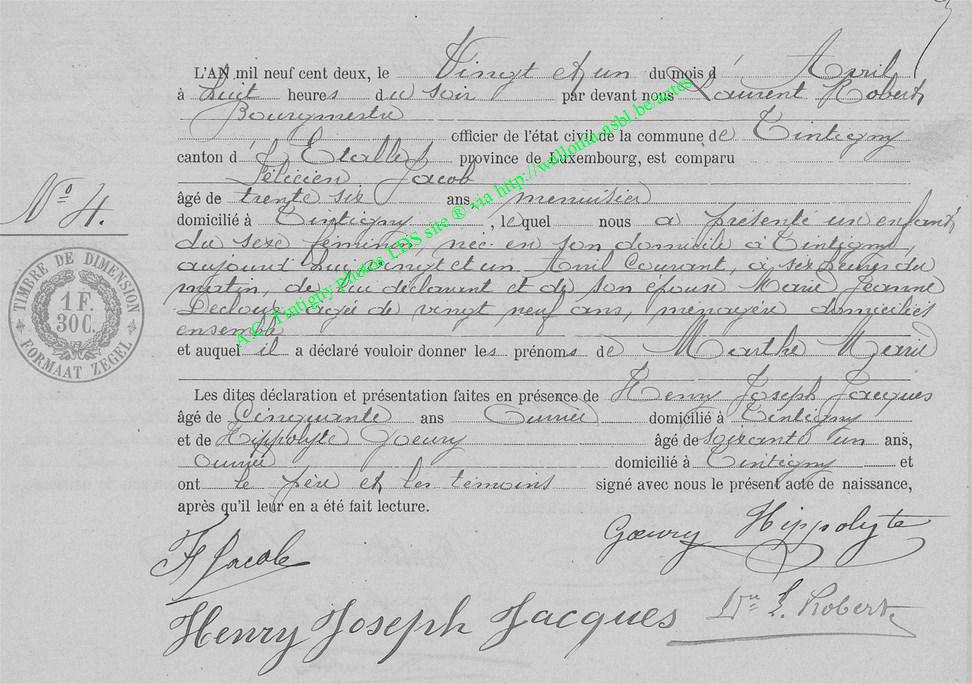 L'AN mil neuf cent deux, le Vingt et un du mois d' Avril
à huit heures du soir par devant nous Laurent Robert
Bourgmestre
officier de l'état civil de la commune de Tintigny
canton d' Etalle province de Luxembourg, est comparu
Félicien Jacob
âgé de trente six ans, menuisier
domicilié à Tintigny, lequel nous a présenté un enfant
du sexe féminin, née en son domicile à Tintigny,
aujourd'hui vingt et un Avril courant, à six heures du
matin, de lui déclarant et de son épouse Marie Jeanne
âgée de vingt neuf ans, ménagère domiciliés
ensemble
et auquel il a déclaré vouloir donner les prénoms de Marthe Marie
Les dites déclaration et présentation faites en présence de Henry Joseph Jacques
âgé de Cinquante ans Ouvrier domicilié à Tintigny
et de Hippolyte Goeury âgé de soixante un ans,
ouvrier domicilié à Tintigny et
ont le père et les témoins signé avec nous le présent acte de naissance,
après qu'il leur en a été fait lecture.
No 4.
TIMBRE DE DIMENSION
1 F.
30 C.
FORMAAT ZEGEL
A.C. Tintigny photos LHS site ® via http://wallonia.asbl.be/actes
Goeury Hippolyte
F Jacob
Henry Joseph Jacques
L. Robert